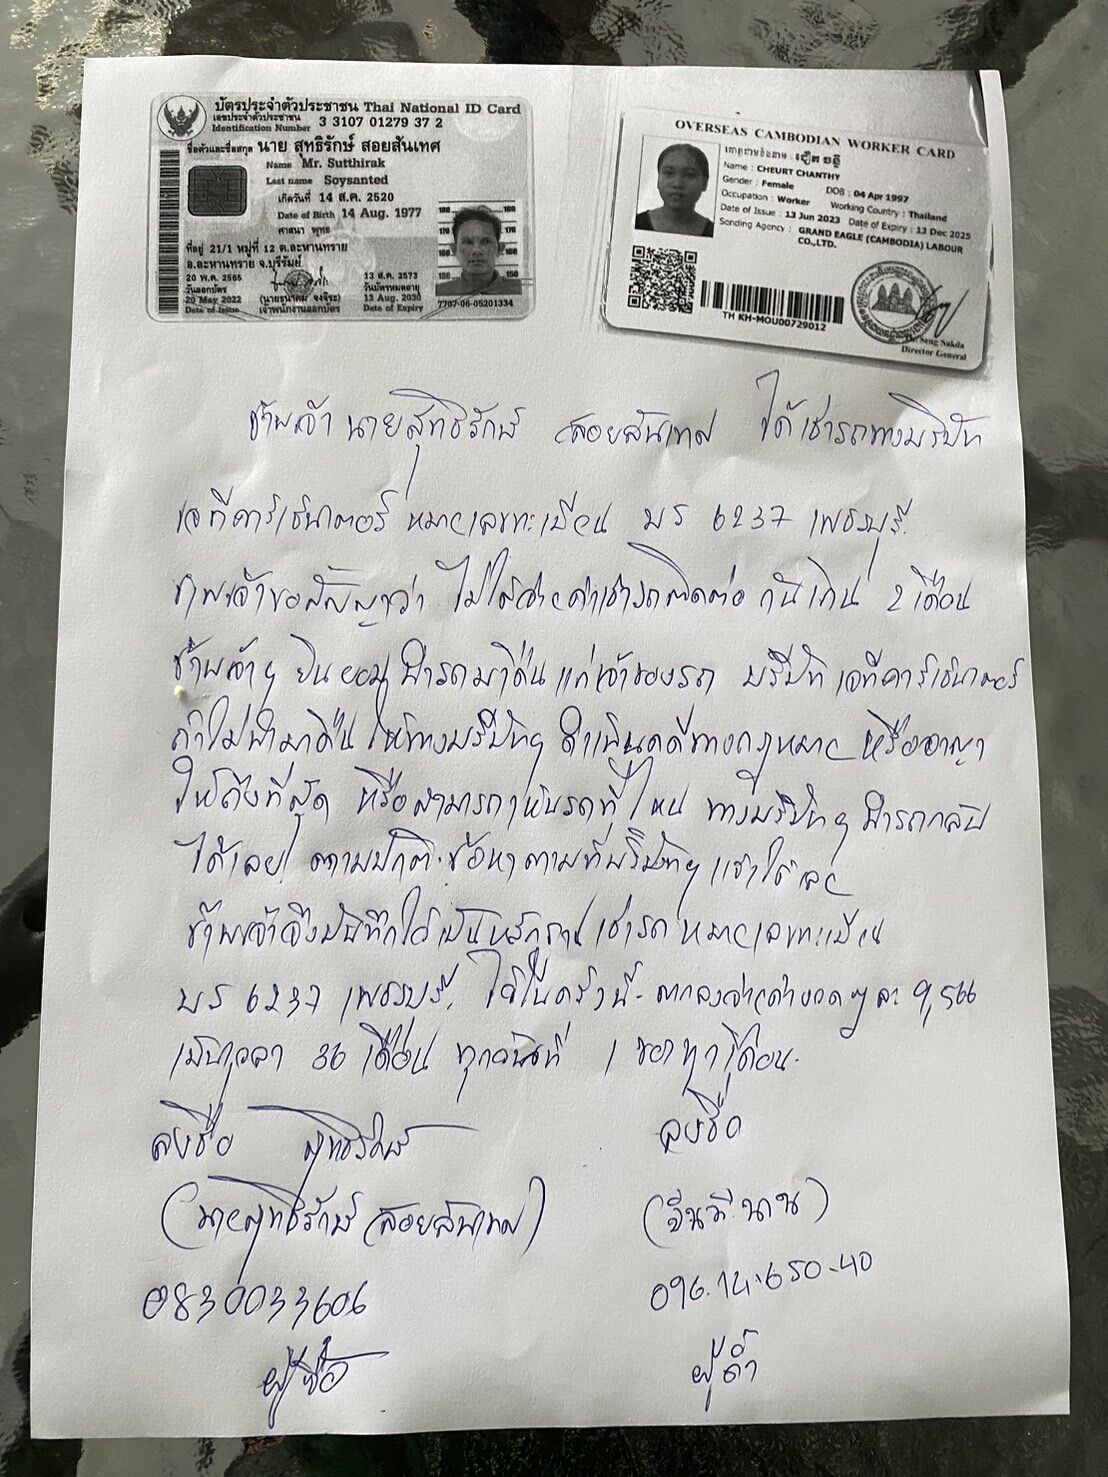 บัตรประจำตัวประชาชน Thai National ID Card
เลขประจำตัวประชาชน 3 3107 01279 37 2
Identification Number
ชื่อตัวและชื่อสกุล นาย สุทธิรักษ์ สอยสันเทศ
Name Mr. Sutthirak
Last name Soysanted
เกิดวันที่ 14 ส.ค. 2520
Date of Birth 14 Aug. 1977
ศาสนา พุทธ
ที่อยู่ 21/1 หมู่ที่ 12 ต.ละหานทราย
อ.ละหานทราย จ.บุรีรัมย์
20 พ.ค. 2565
วันออกบัตร
20 May 2022
Date of Issue
เจ้าพนักงานออกบัตร
13 ส.ค. 2573
วันบัตรหมดอายุ
13 Aug. 2030
Date of Expiry
7707-06-05201334
OVERSEAS CAMBODIAN WORKER CARD
Name : CHEURT CHANTHY
Gender : Female DOB : 04 Apr 1997
Occupation : Worker Working Country : Thailand
Date of Issue : 13 Jun 2023 Date of Expiry : 13 Dec 2025
Sending Agency : GRAND EAGLE (CAMBODIA) LABOUR
CO.,LTD.
TH KH-MOU00729012
Seng Sakda
Director General
ข้าพเจ้า นายสุทธิรักษ์ สอยสันเทศ ได้เช่ารถทางบริษัท
เจทีคาร์เซ็นเตอร์ หมายเลขทะเบียน บร 6237 เพชรบุรี
ข้าพเจ้าขอสัญญาว่า ไม่ได้จ่ายค่าเช่ารถติดต่อ กันเกิน 2 เดือน
ข้าพเจ้าฯ ยินยอมนำรถมาคืน แก่เจ้าของรถ บริษัท เจทีคาร์เซ็นเตอร์
ถ้าไม่นำมาคืน ให้ทางบริษัทฯ ดำเนินคดีทางกฎหมาย หรืออาญา
ให้ถึงที่สุด หรือสามารถเห็นรถที่ไหน ทางบริษัทฯ นำรถกลับ
ได้เลย ตามปกติ ข้อหาตามที่บริษัทฯ แจ้งไว้เลย
ข้าพเจ้าจึงบันทึกไว้เป็นหลักฐาน เช่ารถ หมายเลขทะเบียน
บร 6237 เพชรบุรี ไว้ในครั้งนี้ ตกลงจ่ายค่างวดๆ ละ 9,566
เป็นเวลา 36 เดือน ทุกวันที่ 1 ของทุกเดือน
ลงชื่อ สุทธิรักษ์ ลงชื่อ
(นายสุทธิรักษ์ สอยสันเทศ) (จีนมีนาน)
0830033606 096.14.650.40
ผู้ซื้อ ผู้ค้ำ